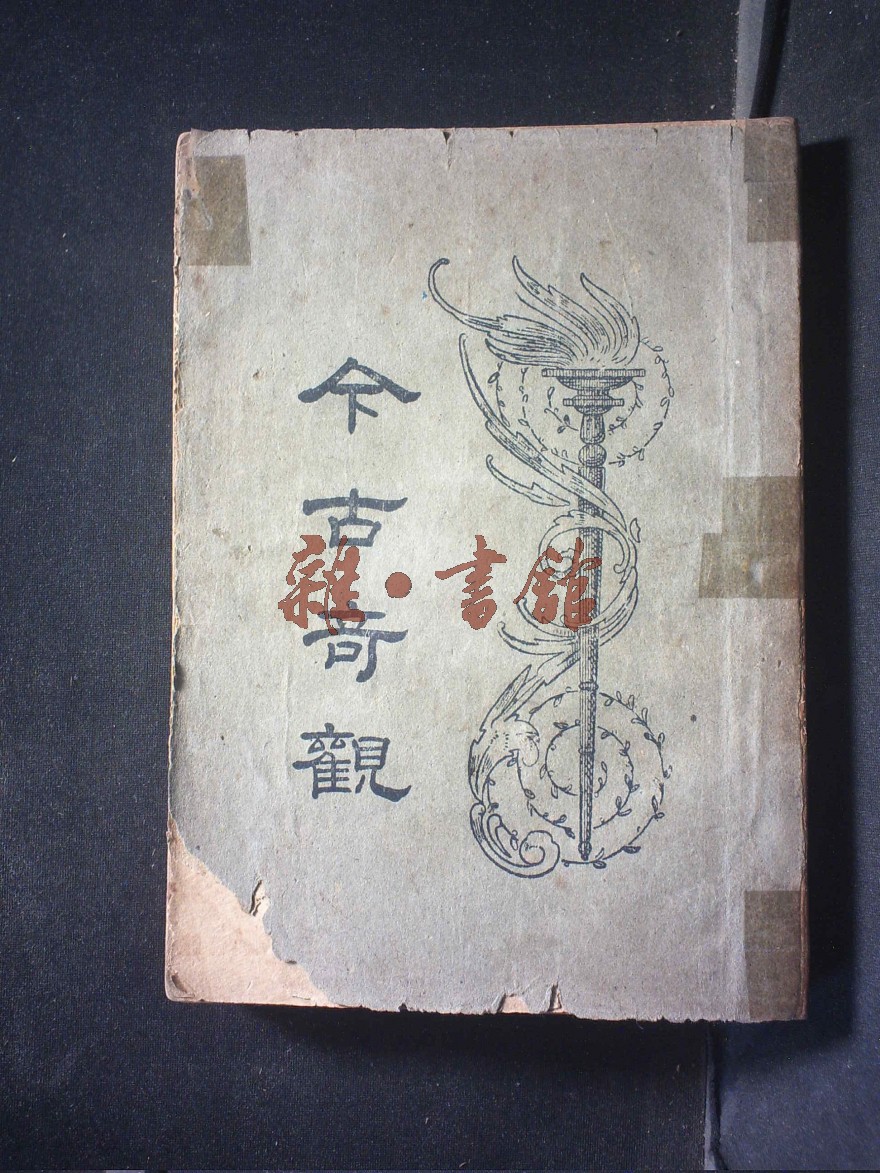 今古奇觀
雜·書館